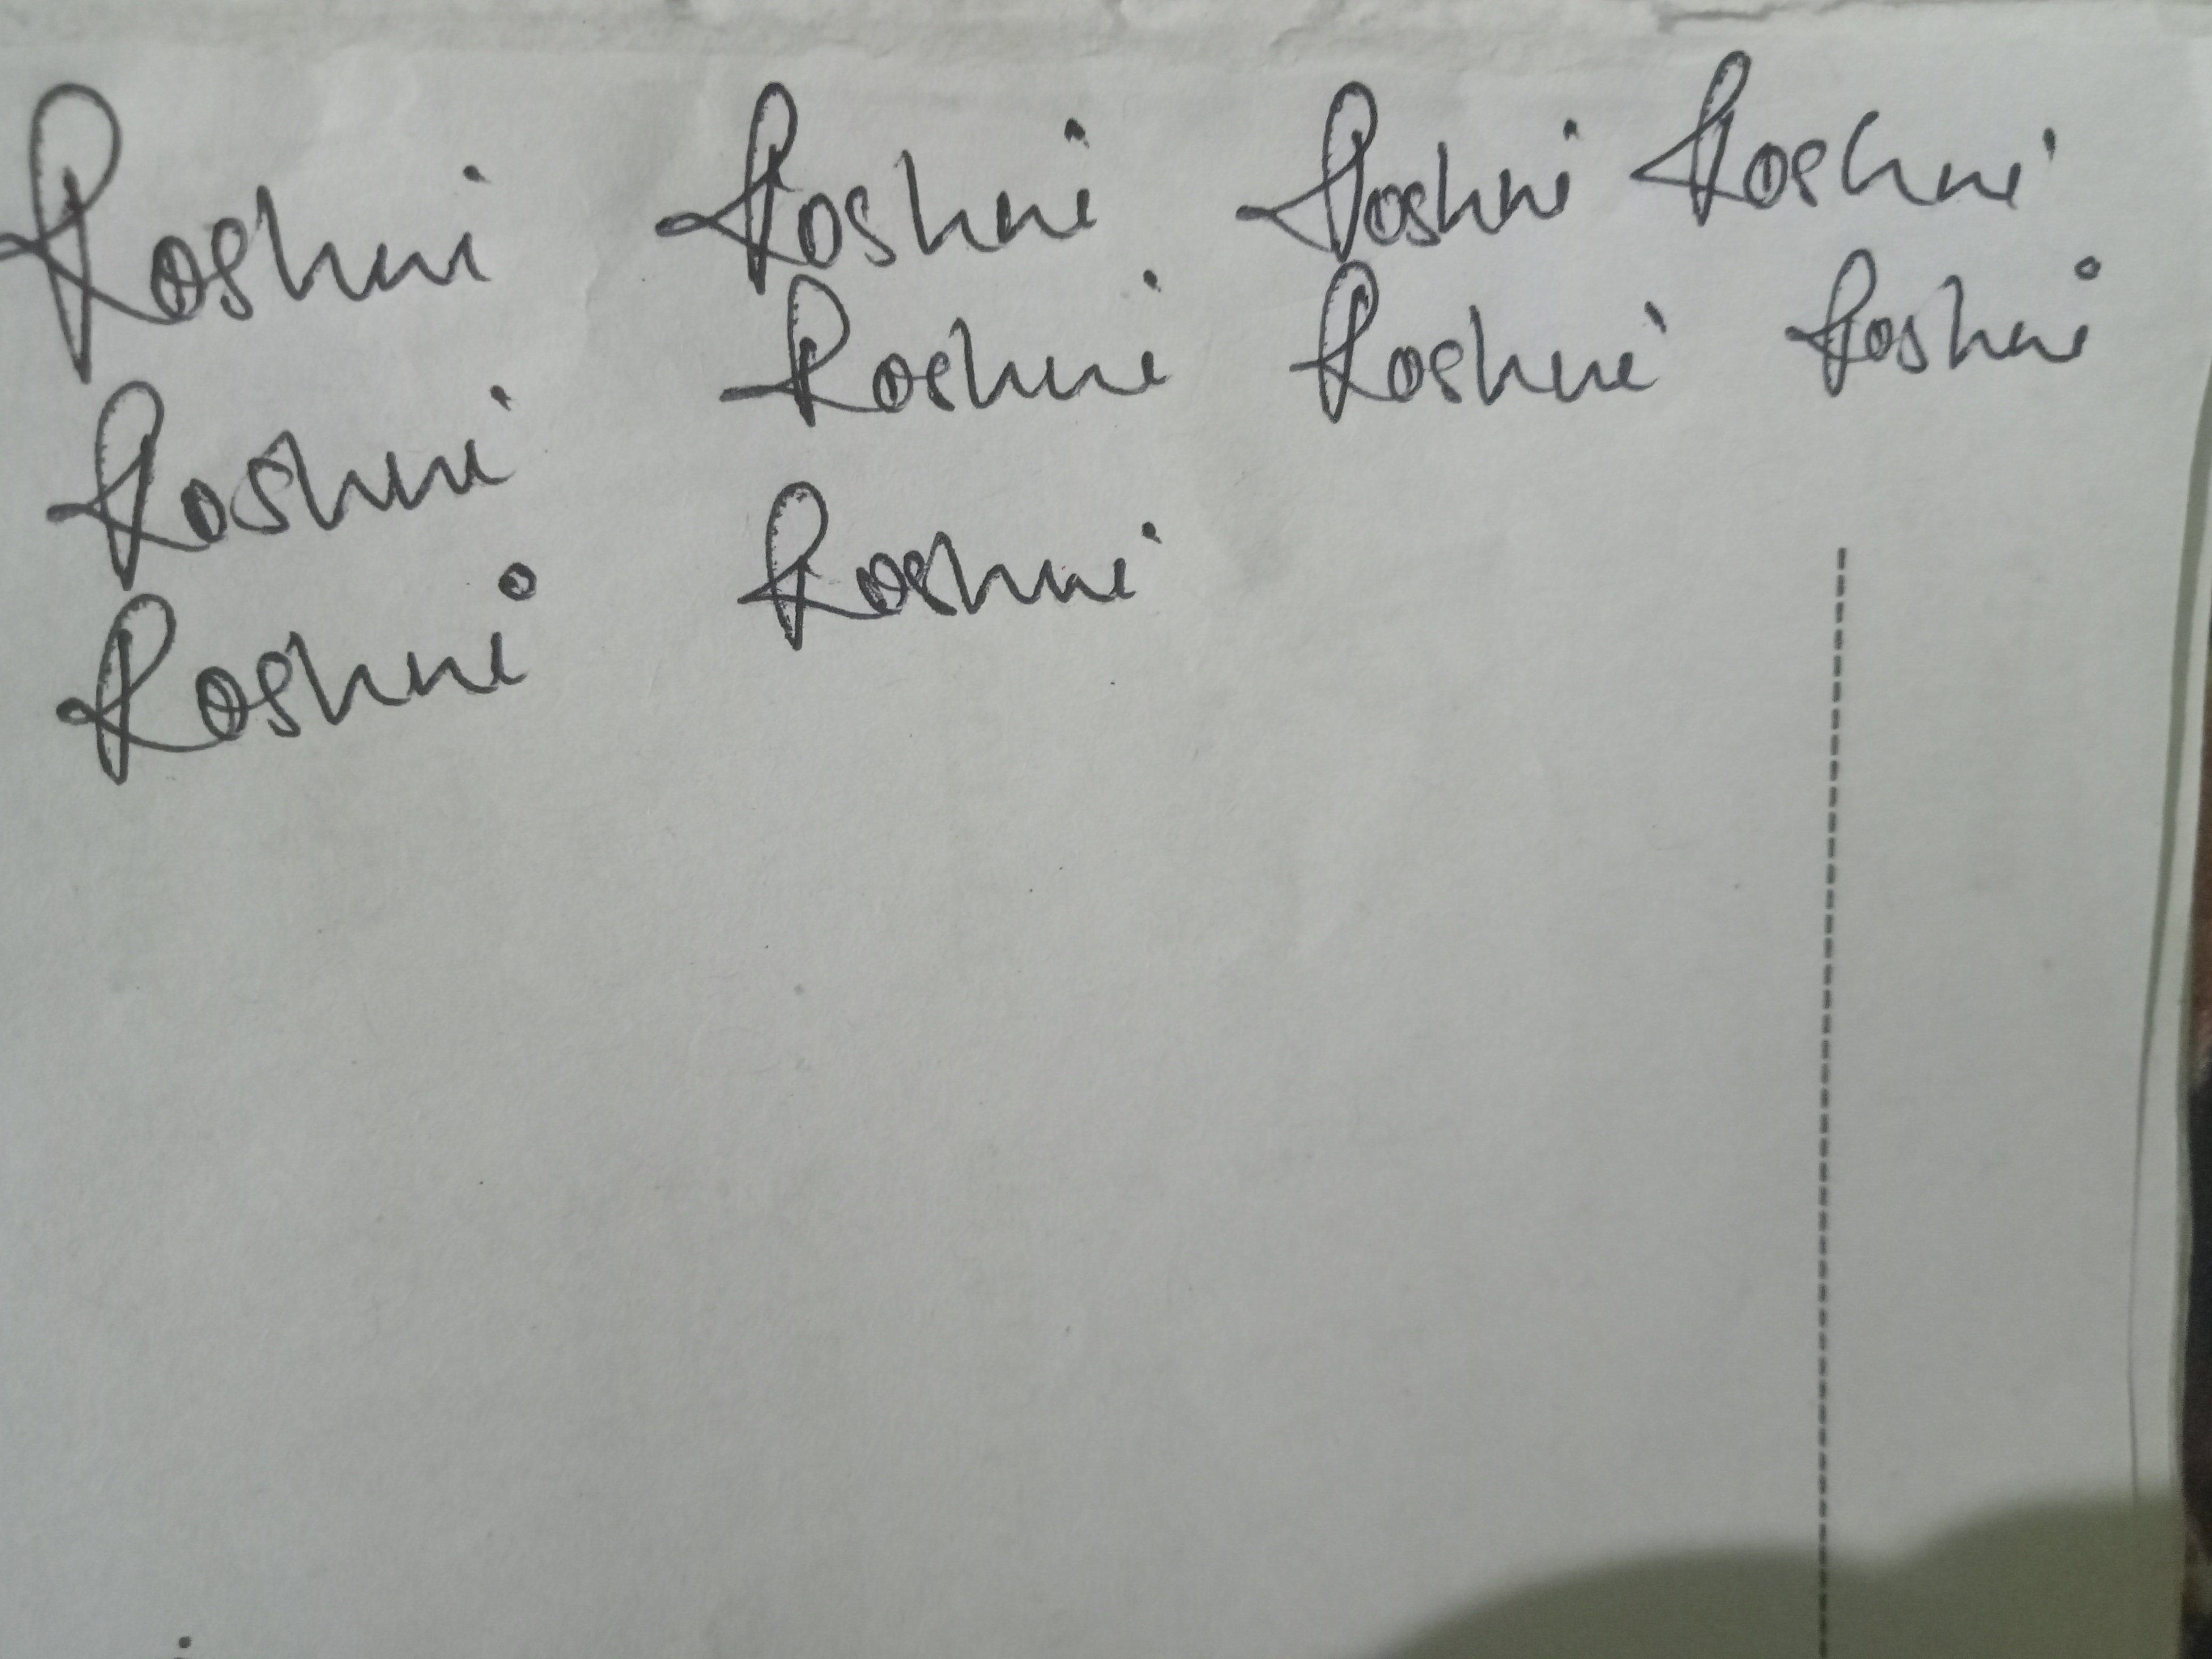 Roshni Roshni Roshni Roshni
Roshni Roshni Roshni Roshni
Roshni Roshni